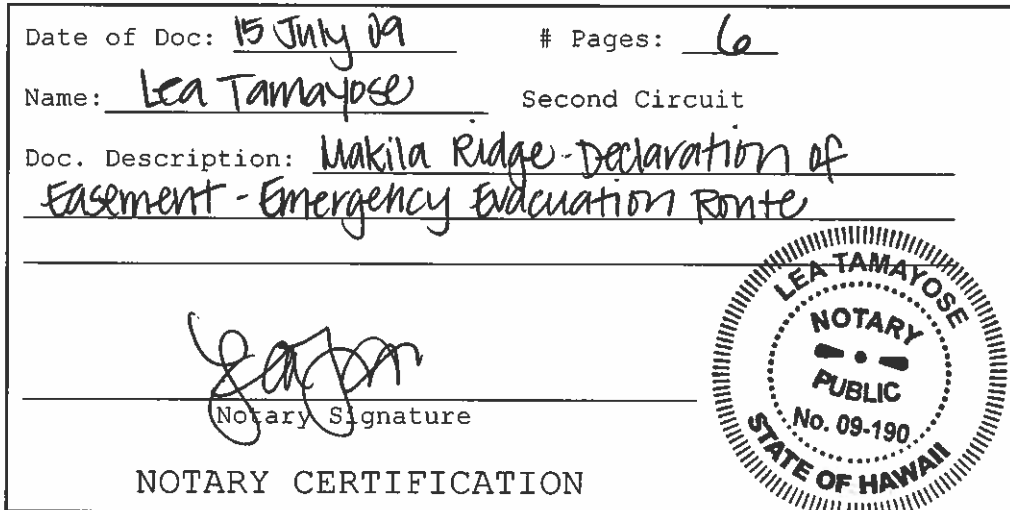 Date of Doc: 15 July 09 # Pages: 6
Name: Lea Tamayose Second Circuit
Doc. Description: Makila Ridge-Declaration of
Easement - Emergency Evacuation Route
Notary Signature
NOTARY CERTIFICATION
LEA TAMAYOSE
NOTARY
PUBLIC
No. 09-190
STATE OF HAWAII